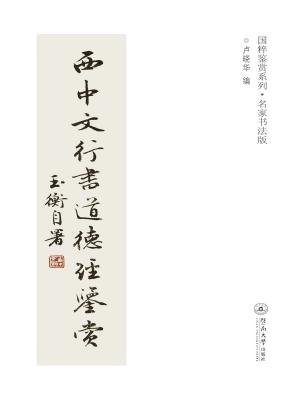 国粹鉴赏系列·名家书法版
编
西中文行書道德經鑒賞
玉衡自署
暨南大学出版社